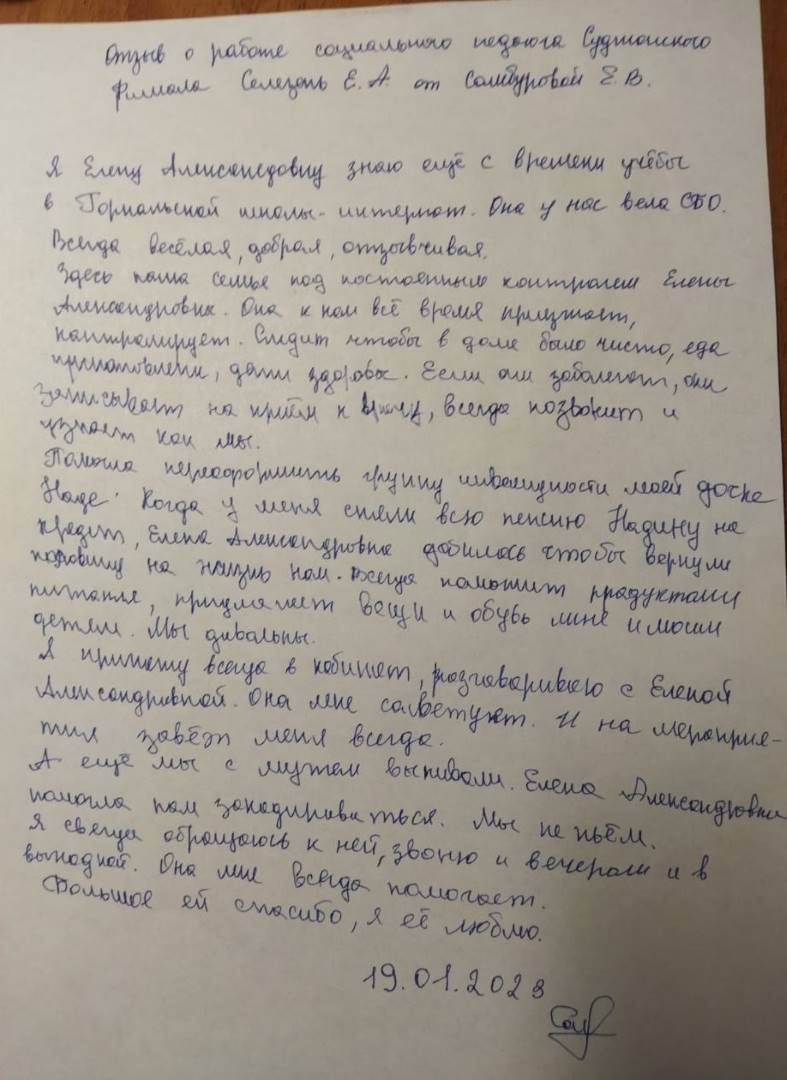 Отзыв о работе социального педагога Суджанского
филиала Селезень Е.А. от Самбуровой Е.В.
Я Елену Александовну знаю ещё с времени учёбы
в Горнальской школы-интернат. Она у нас вела СБО.
Всегда весёлая, добрая, отзывчивая.
Здесь наша семья под постоянным контролем Елены
Александровны. Она к нам всё время приезжает,
кантралирует. Следит чтобы в доме было чисто, еда
приготовлени, дети здоровы. Если они заболеют, она
записывает на приём к врачу, всегда позвонит и
узнает как мы.
Памагла переоформить групу инвалидности маей дочке
Наде. Когда у меня сняли всю пенсию Надину на
кредит, Елена Александровна дабилась чтобы вернули
половину на жизню нам. Всегда паможит продуктами
питания, предлагает вещи и обувь мне и моим
детям. Мы давольны.
Я прихожу всегда в кабинет, разговариваю с Еленой
Александравной. Она мне саветует. И на мероприя-
тия завёт меня всегда.
А ещё мы с мужем выпивали. Елена Александровна
памагла нам закадираваться. Мы не пьём.
Я всегда обращаюсь к ней, звоню и вечерам и в
выходной. Она мне всегда помогает.
Большое ей спасибо, я её люблю.
19.01.2023